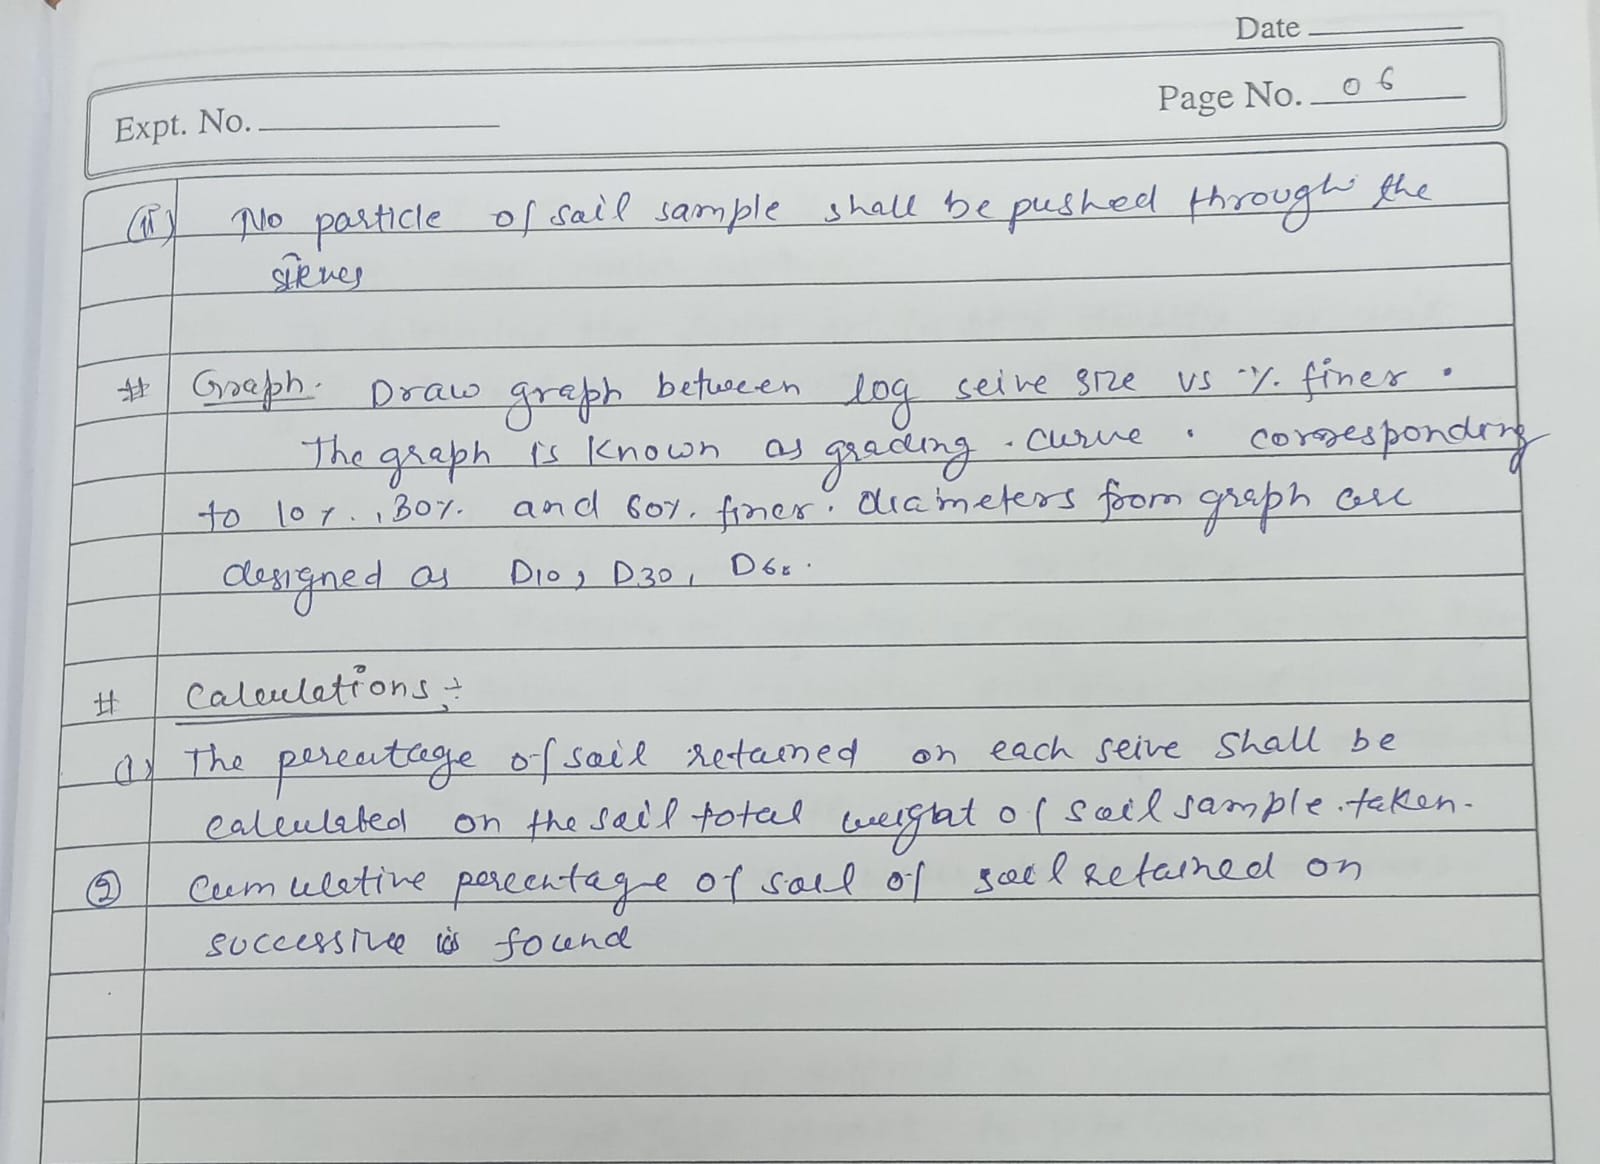 Date
Expt. No.
Page No. 06
(ii) No particle of sail sample shall be pushed through the
sieves
# Graph. Draw graph between log seive size vs % finer.
The graph is known as grading curve. corresponding
to 10%, 30% and 60% finer. diameters from graph are
designed as D10, D30, D60.
# Calculations :-
(1) The percentage of soil retained on each seive shall be
calculated on the sail total weight of soil sample taken.
(2) Cumulative percentage of soil of soil retained on
successive is found